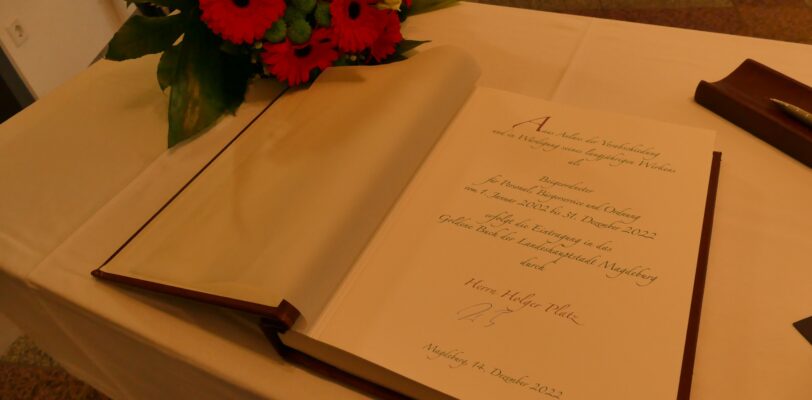 Aus Anlass der Verabschiedung
und in Würdigung seines langjährigen Wirkens
als
Beigeordneter
für Personal, Bürgerservice und Ordnung
vom 1. Januar 2002 bis 31. Dezember 2022
erfolgt die Eintragung in das
Goldene Buch der Landeshauptstadt Magdeburg
durch
Herrn Holger Platz
Magdeburg, 14. Dezember 2022